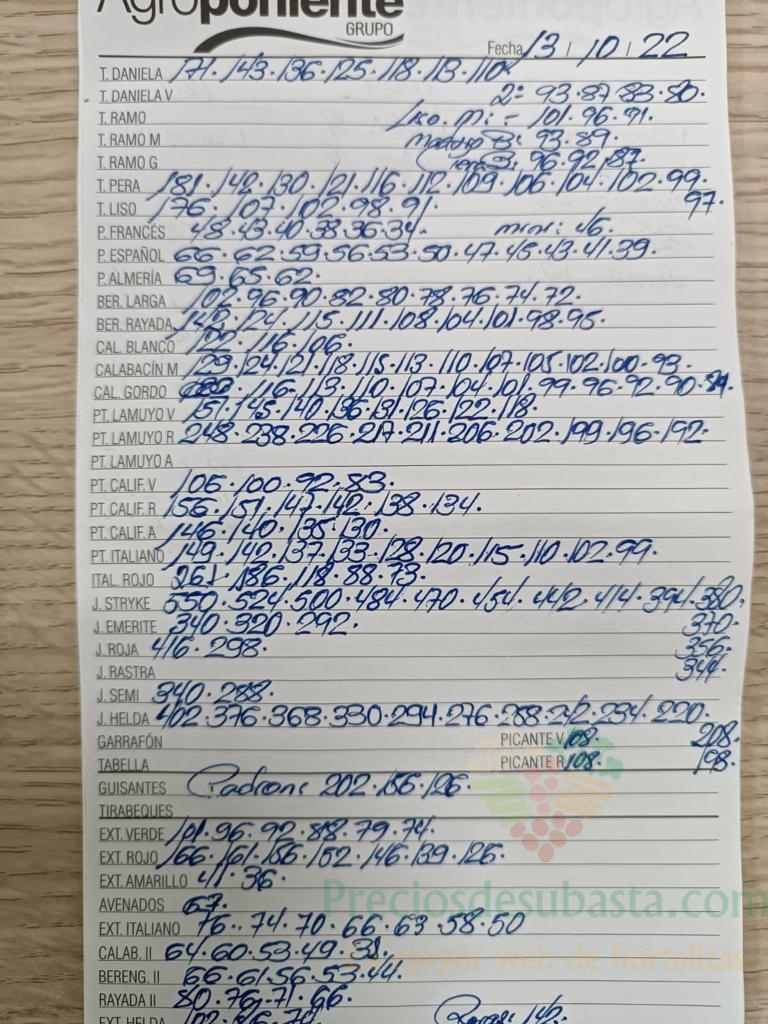 Agroponiente
GRUPO
Fecha 13 / 10 / 22
T. DANIELA 171·143·136·125·118·113·110·
T. DANIELA V 2ª 93·87·83·80·
T. RAMO 101·96·91·
T. RAMO M 93·89·
T. RAMO G 96·92·87·
T. PERA 181·142·130·121·116·112·109·106·104·102·99·
97·
T. LISO 176·107·102·98·91·
P. FRANCÉS 48·43·40·38·36·34· mini: 16·
P. ESPAÑOL 66·62·59·56·53·50·47·45·43·41·39·
P. ALMERÍA 69·65·62·
BER. LARGA 102·96·90·82·80·78·76·74·72·
BER. RAYADA 142·124·115·111·108·104·101·98·95·
CAL. BLANCO 122·116·106·
CALABACÍN M 129·124·121·118·115·113·110·107·105·102·100·93·
CAL. GORDO 116·113·110·107·104·101·99·96·92·90·84·
PT. LAMUYO V 151·145·140·136·131·126·122·118·
PT. LAMUYO R 248·238·226·217·211·206·202·199·196·192·
PT. LAMUYO A
PT. CALIF. V 106·100·92·83·
PT. CALIF. R 156·151·147·142·138·134·
PT. CALIF. A 146·140·135·130·
PT. ITALIANO 149·142·137·133·128·120·115·110·102·99·
ITAL. ROJO 261·186·118·88·73·
J. STRYKE 550·524·500·484·470·454·442·414·394·380·
J. EMERITE 340·320·292· 370·
J. ROJA 416·298· 356·
J. RASTRA 344·
J. SEMI 340·288·
J. HELDA 402·376·368·330·294·276·288·242·234·220·
GARRAFÓN PICANTE V 108· 208·
TABELLA PICANTE R 108· 198·
GUISANTES Padron: 202·156·126·
TIRABEQUES
EXT. VERDE 101·96·92·88·79·74·
EXT. ROJO 166·161·156·152·146·139·126·
EXT. AMARILLO 41·36·
AVENADOS 67·
Preciosdesubasta.com
EXT. ITALIANO 76··74·70·66·63·58·50
CALAB. II 64·60·53·49·31·
mayor web de hortalizas
BERENG. II 66·61·56·53·44·
RAYADA II 80·76·71·66·
EXT HELDA